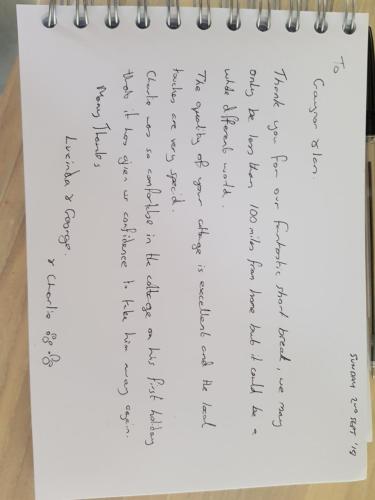 SUNDAY 2ND SEPT '18
To
Gaynor & Ian.
Thank you for our fantastic short break, we may
only be less than 100 miles from home but it could be a
whole different world.
The quality of your cottage is excellent and the local
touches are very special.
Charlie was so comfortable in the cottage on his first holiday
thats it has given us confidence to take him away again.
Many Thanks
Lucinda & George.
& Charlie